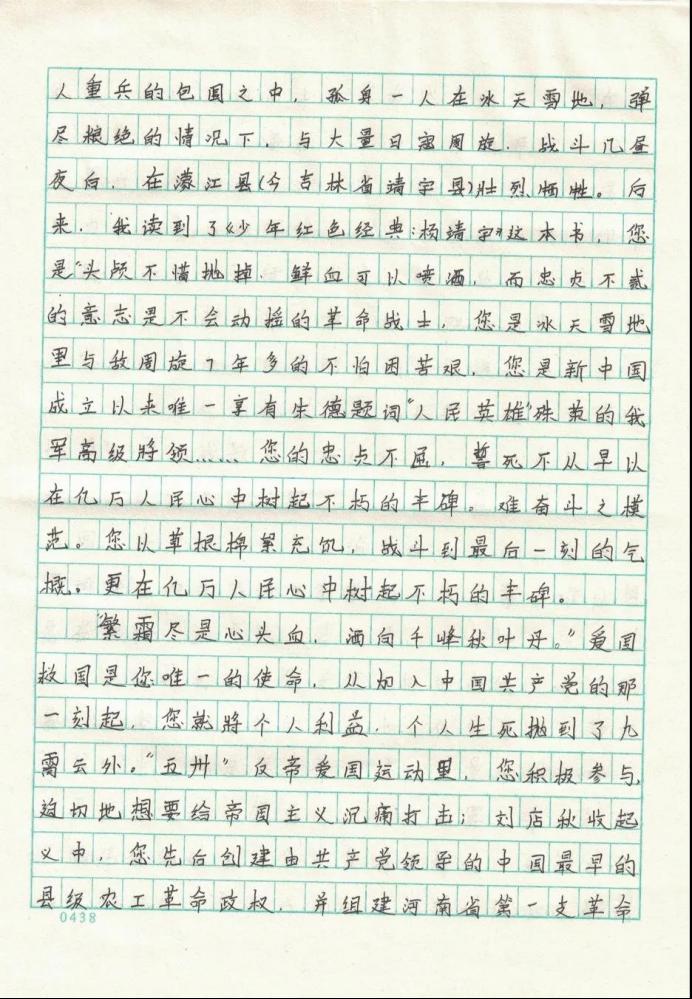 人重兵的包围之中，孤身一人在冰天雪地，弹
尽粮绝的情况下，与大量日寇周旋，战斗几昼
夜后，在濛江县(今吉林省靖宇县)壮烈牺牲。后
来，我读到了《少年红色经典:杨靖宇》这本书，您
是“头颅不惜抛掉，鲜血可以喷洒，而忠贞不贰
的意志是不会动摇的革命战士，您是冰天雪地
里与敌周旋7年多的不怕困苦艰，您是新中国
成立以来唯一享有朱德题词“人民英雄”殊荣的我
军高级将领……您的忠贞不屈，誓死不从早以
在亿万人民心中树起不朽的丰碑。难奋斗之模
范。您以草根棉絮充饥，战斗到最后一刻的气
概。更在亿万人民心中树起不朽的丰碑。
“繁霜尽是心头血，洒向千峰秋叶丹。”爱国
救国是您唯一的使命，从加入中国共产党的那
一刻起，您就将个人利益，个人生死抛到了九
霄云外。“五卅”反帝爱国运动里，您积极参与，
迫切地想要给帝国主义沉痛打击；刘店秋收起
义中，您先后创建由共产党领导的中国最早的
县级农工革命政权，并组建河南省第一支革命
0438